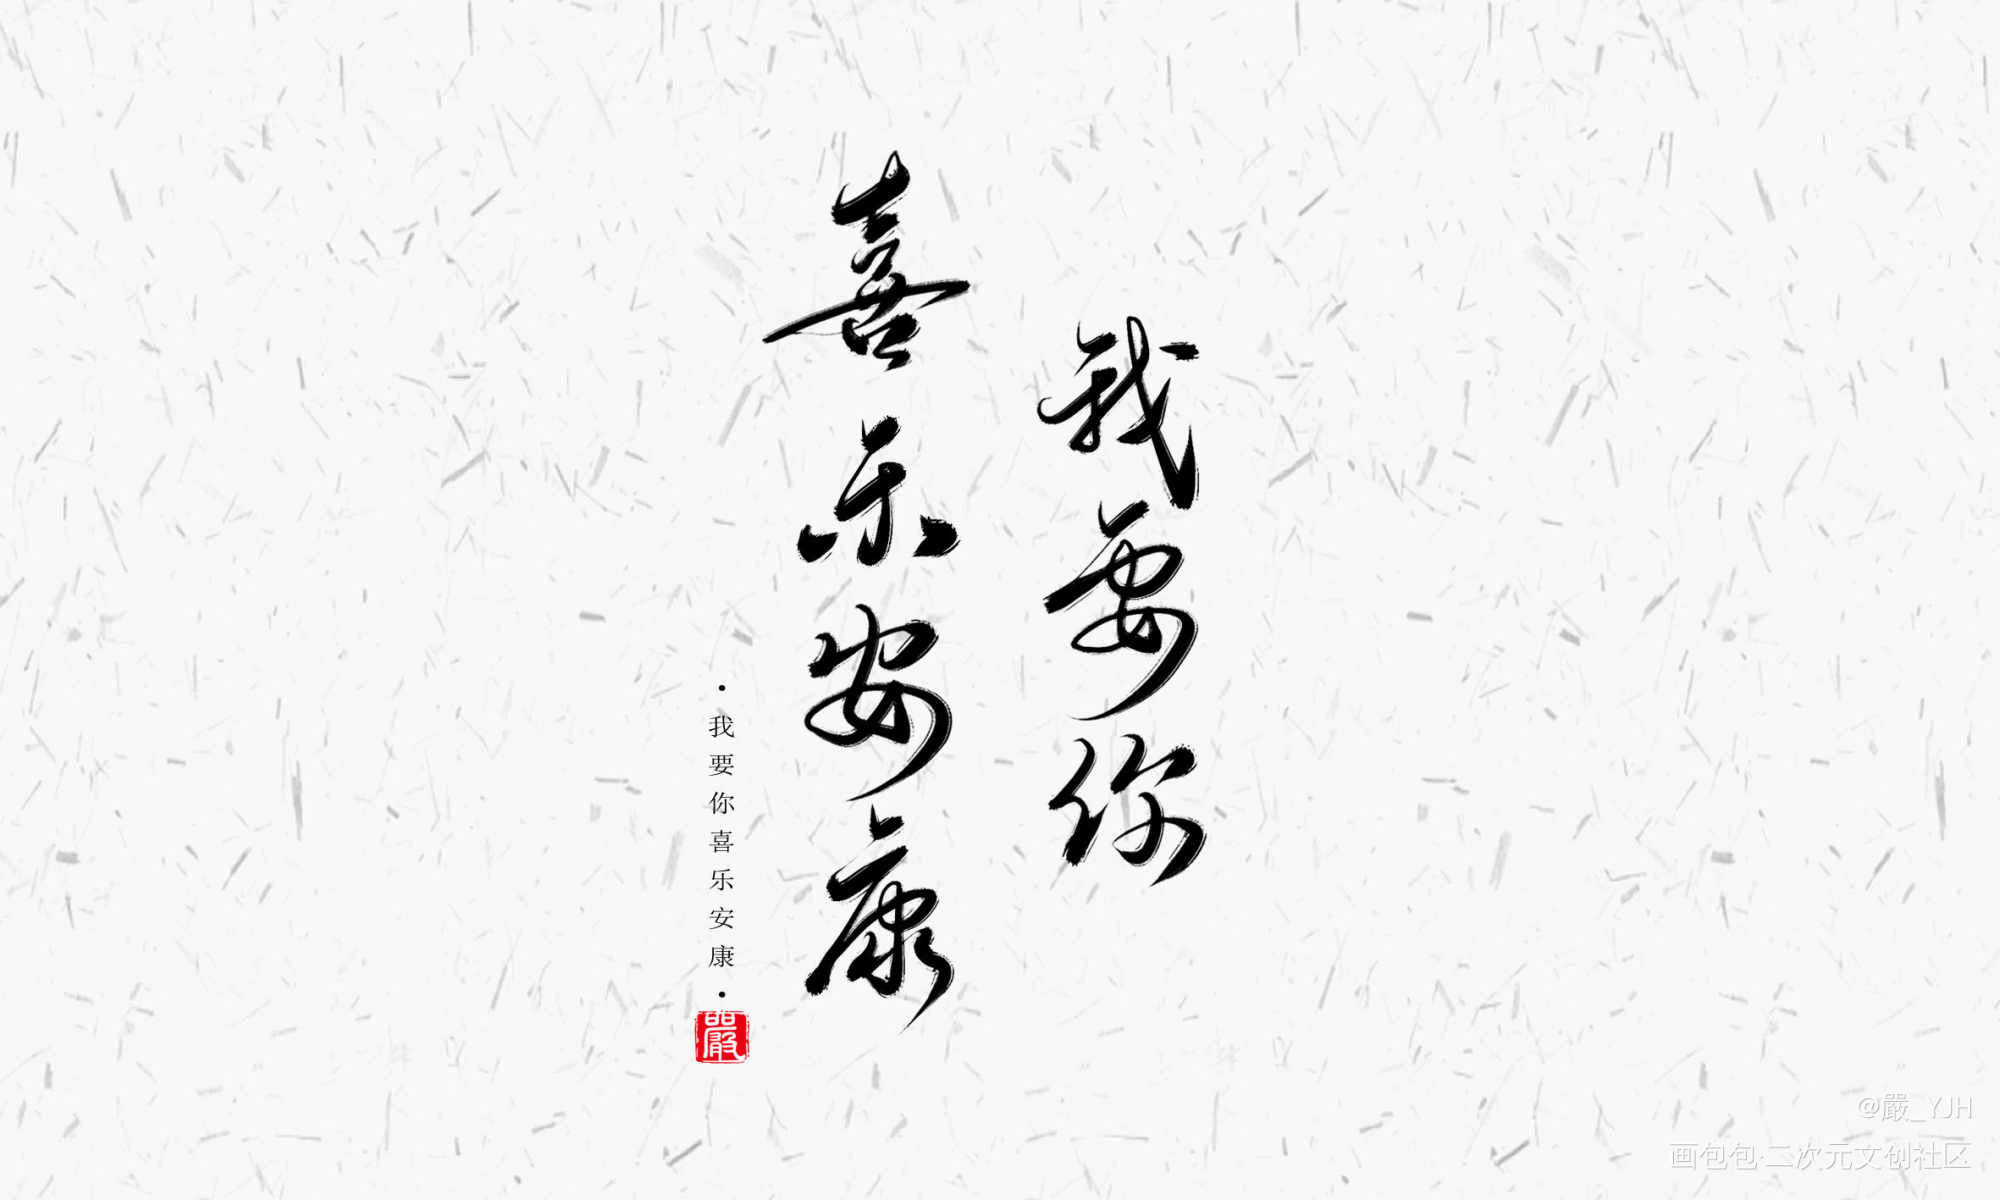 我要你
喜乐安康
·我要你喜乐安康·
嚴
@嚴_YJH
画包包·二次元文创社区